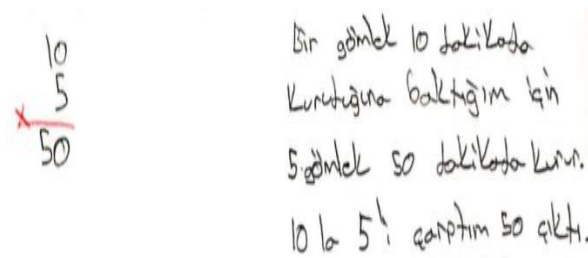 10
5
x
50
Bir gömlek 10 dakikada
kuruduğuna baktığım için
5 gömlek 50 dakikada kurur.
10 la 5'i çarptım 50 çıktı.